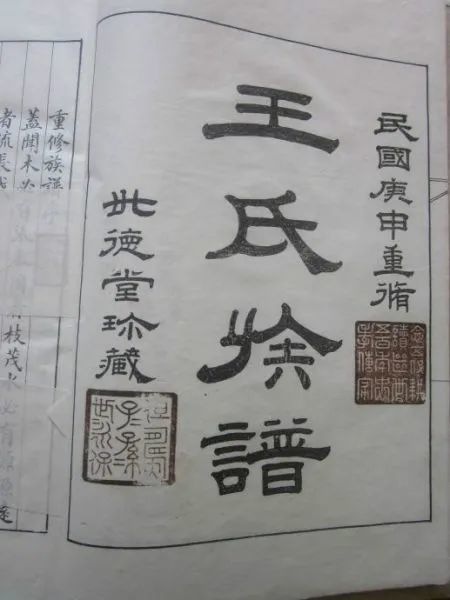 民國庚申重脩
王氏族譜
世德堂珎藏
重修族譜序
蓋聞木必枝茂水必有源源遠
者流長